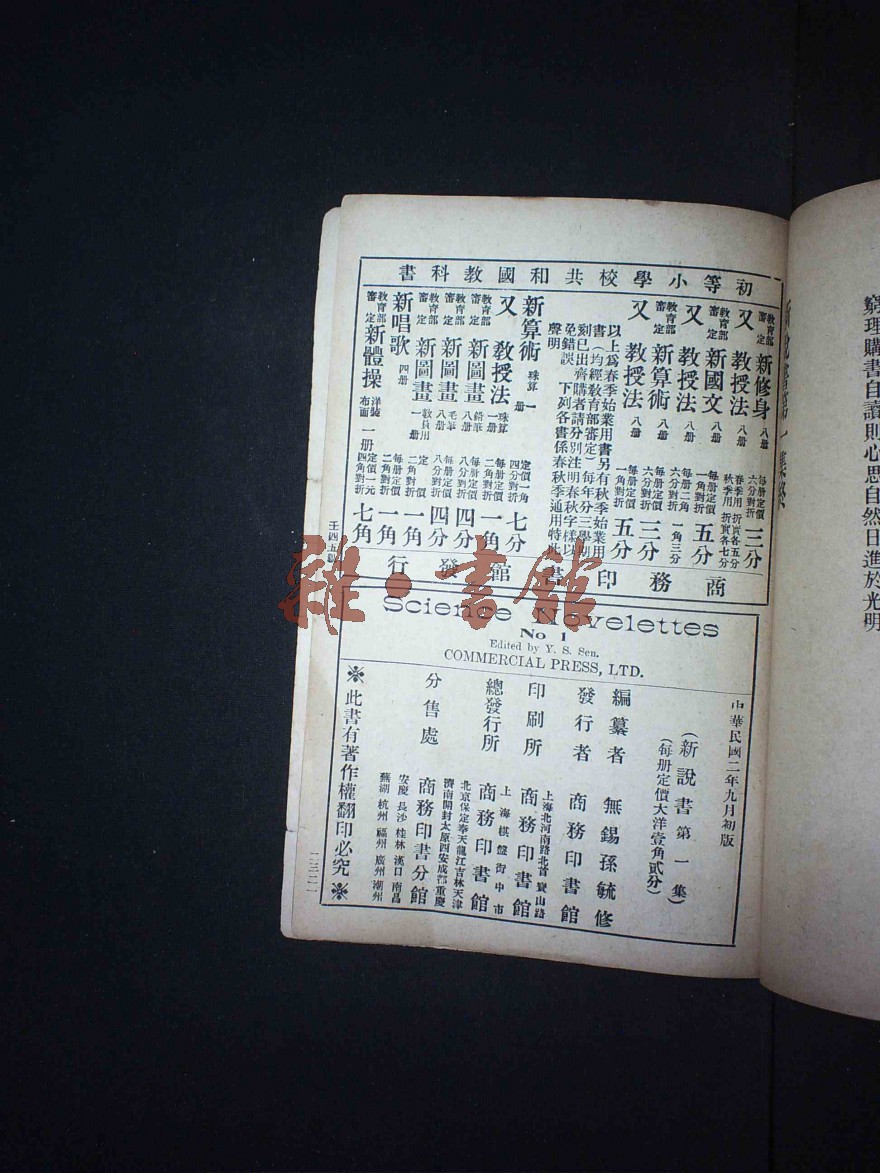 窮理購書自讀則心思自然日進於光明
初等小學校共和國教科書
教育部審定 新修身 八册 每册定價六分對折 三分
又 教授法 八册 春季用折實各五分 秋季用折實各七分
教育部審定 新國文 八册 每册定價一角對折 五分
又 教授法 八册 每册二角六分對折 一角三分
教育部審定 新算術 八册 每册定價六分對折 三分
又 教授法 八册 每册定價一角對折 五分
以上爲春季始業用書另有秋季始業用
書(均經教育部審定)每年分三學期
刻已出齊購者請分別注明春秋字樣以
免錯誤 下列各書係春秋季通用特此
聲明
新算術 珠算 一册 定價一角四分對折 七分
又 教授法 珠算一册 每册定價二角對折 一角
教育部審定 新圖畫 鉛筆八册 每册定價八分對折 四分
教育部審定 新圖畫 毛筆八册 每册定價八分對折 四分
教育部審定 新圖畫 教員用一册 定價二角對折 一角
新唱歌 四册 每册定價二角對折 一角
教育部審定 新體操 洋裝布面 一册 定價一元四角對折 七角
商務印書館發行
Science Novelettes
No 1
Edited by Y. S. Sen.
COMMERCIAL PRESS, LTD.
中華民國二年九月初版
(新說書第一集)
(每册定價大洋壹角貳分)
編纂者 無錫孫毓修
發行者 商務印書館
印刷所 上海北河南路北首寶山路 商務印書館
總發行所 上海棋盤街中市 商務印書館
分售處 北京保定奉天龍江吉林天津
濟南開封太原西安成都重慶
商務印書分館
安慶長沙桂林漢口南昌
蕪湖杭州福州廣州潮州
※此書有著作權翻印必究※
二三二一
雜·書館